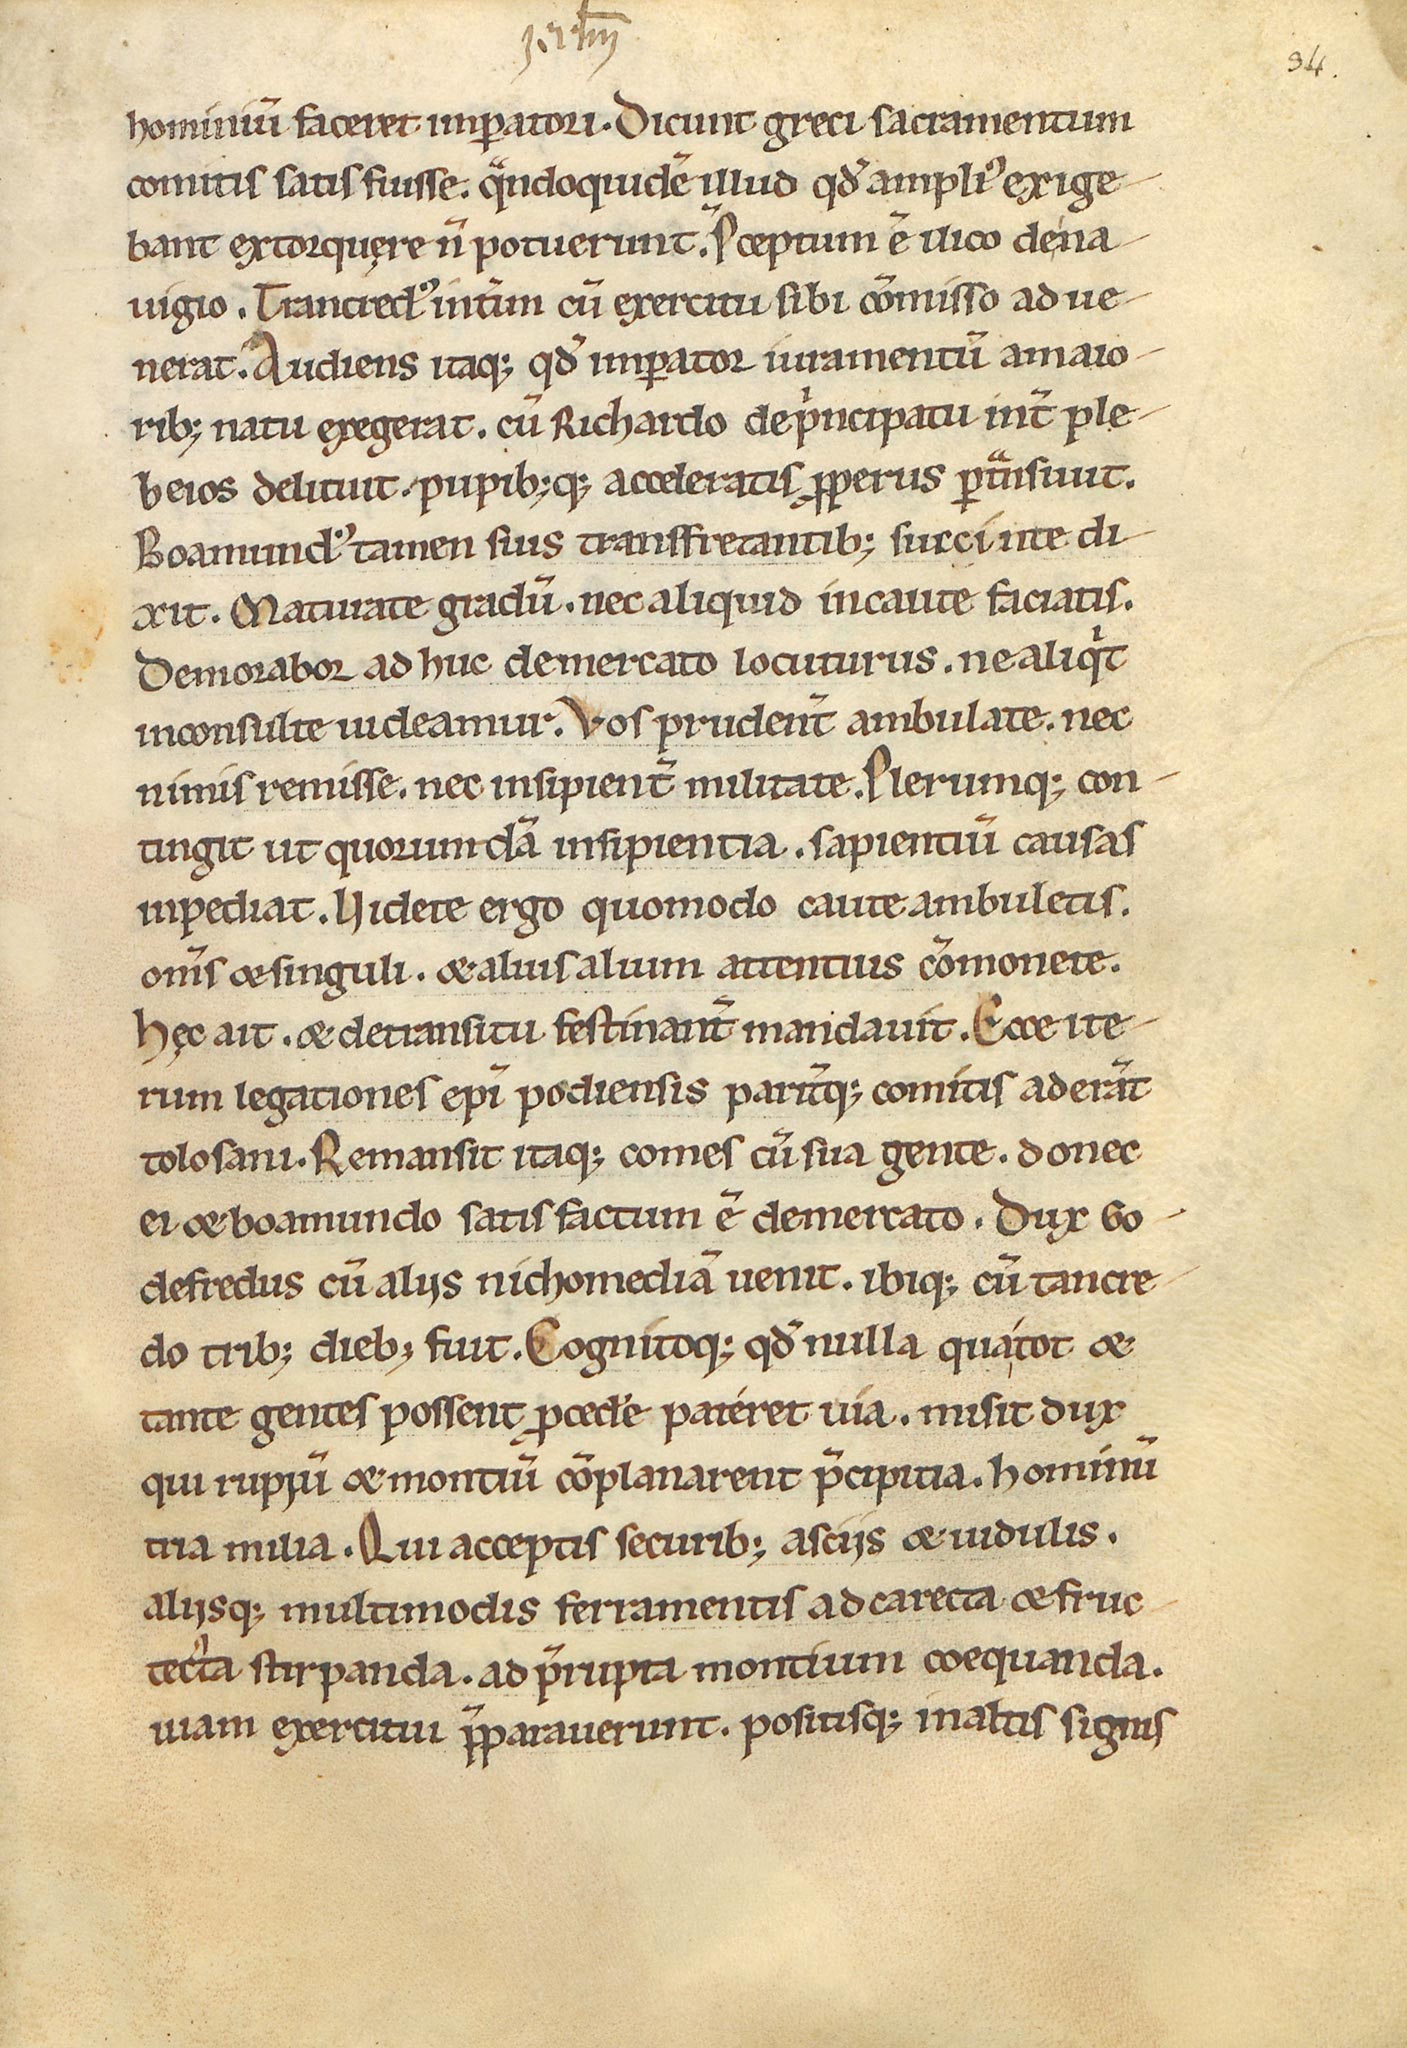 34.
hominiū faceret imꝑatori. Dicunt greci sacramentum
comitis satis fuisse. qͣndoquidē illud qđ ampliꝰ exige-
bant extorquęre n̄ potuerunt. P̄ceptum ē ilico de na-
uigio. Tancredꝰ int̄im cū exercitu sibi cōmisso adue-
nerat. Audiens itaq; qđ imꝑator iuramentū a maio-
rib; natu exegerat. cū Richardo de pͥncipatu int̄ ple-
beios delituit. pupib;q; acceleratis ꝓperus ꝑtͣnsiuit.
Boamundꝰ tamen suis transfretantib; succinte di-
xit. Maturate gradū. nec aliquid incaute faciatis.
Demorabor ad huc de mercato locuturus. ne aliqͥt
inconsulte uideamur. Vos prudent̄ ambulate. nec
nimis remisse. nec insipient̄ militate. Plerumq; con-
tingit ut quorumdā insipientia. sapientiū causas
inpediat. Videte ergo quomodo caute ambuletis.
om̄s & singuli. & alius alium attentius cōmonete.
Hęc ait. & de transitu festinant̄ mandauit. Ecce ite-
rum legationes ep̄i podiensis parit̄q; comitis aderāt
tolosani. Remansit itaq; comes cū sua gente. donec
ei & boamundo satisfactum ē de mercato. Dux Go-
defredus cū alijs nichomediā uenit. ibiq; cū tancre-
do trib; dieb; fuit. Cognitoq; qđ nulla qua tot &
tante gentes possent ꝓcedꝰe pateret uia. misit dux
qui rupiū & montiū cōplanarent p̄cipitia. hominū
tria milia. Qui acceptis securib; asciis & uidulis.
alijsq; multimodis ferramentis ad carecta & fruc-
tecta stirpanda. ad p̄rupta montium coequanda.
uiam exercitui p̄parauerunt. positisq; in altis signis